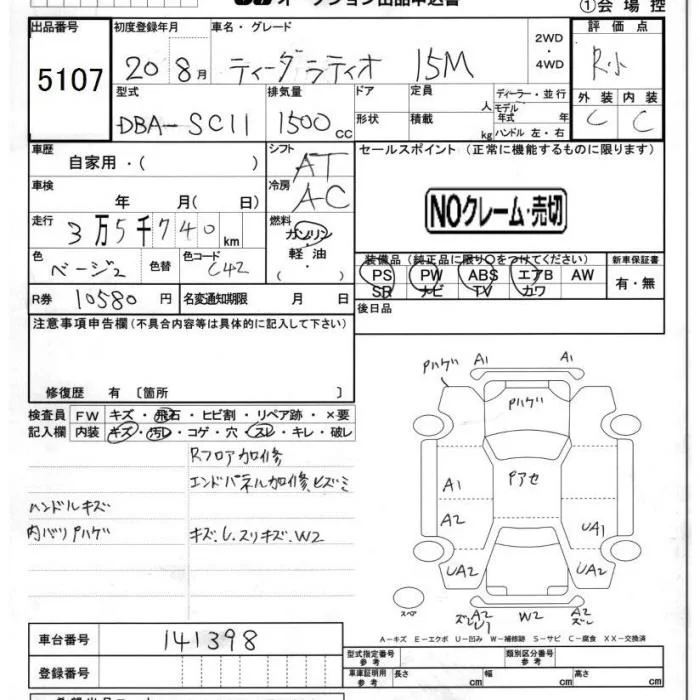 オークション出品申込書
①会場控
出品番号 初度登録年月 車名・グレード 評価点
5107 20 8月 ティーダラティオ 15M 2WD・4WD R小
型式 排気量 ドア 定員 人 ディーラー・並行 外装 内装
DBA-SC11 1500cc 形状 積載 kg モデル年式 年 ハンドル 左・右 C C
車歴 自家用・( ) シフト AT セールスポイント(正常に機能するものに限ります)
車検 年 月( 日) 冷房 AC
NOクレーム・売切
走行 3万5千740km 燃料 ガソリン・軽油・( )
色 ベージュ2 色替 色コード C42
装備品(純正品に限り○をつけてください) 新車保証書
PS PW ABS エアB AW 有・無
SR ナビ TV カワ
R券 10580円 名変通知期限 月 日 後日品
注意事項申告欄(不具合内容等は具体的に記入して下さい)
修復歴 有 〔箇所 〕
検査員 FW キズ・飛石・ヒビ割・リペア跡・×要
記入欄 内装 キズ・汚レ・コゲ・穴・スレ・キレ・破レ
Rフロア加修
エンドパネル加修、ヒズミ
ハンドルキズ
内バリPハゲ キズ.U.スリキズ.W2
Pハゲ A1 A1
Pハゲ
A1 Pアセ
A2 UA1
UA2 UA2
スペア
A2 U1 W2 A2
A-キズ E-エクボ U-凹み W-補修跡 S-サビ C-腐食 XX-交換済
車台番号 141398
型式指定番号 参考 類別区分番号 参考
登録番号 車庫証明用 参考 長さ cm 幅 cm 高さ cm